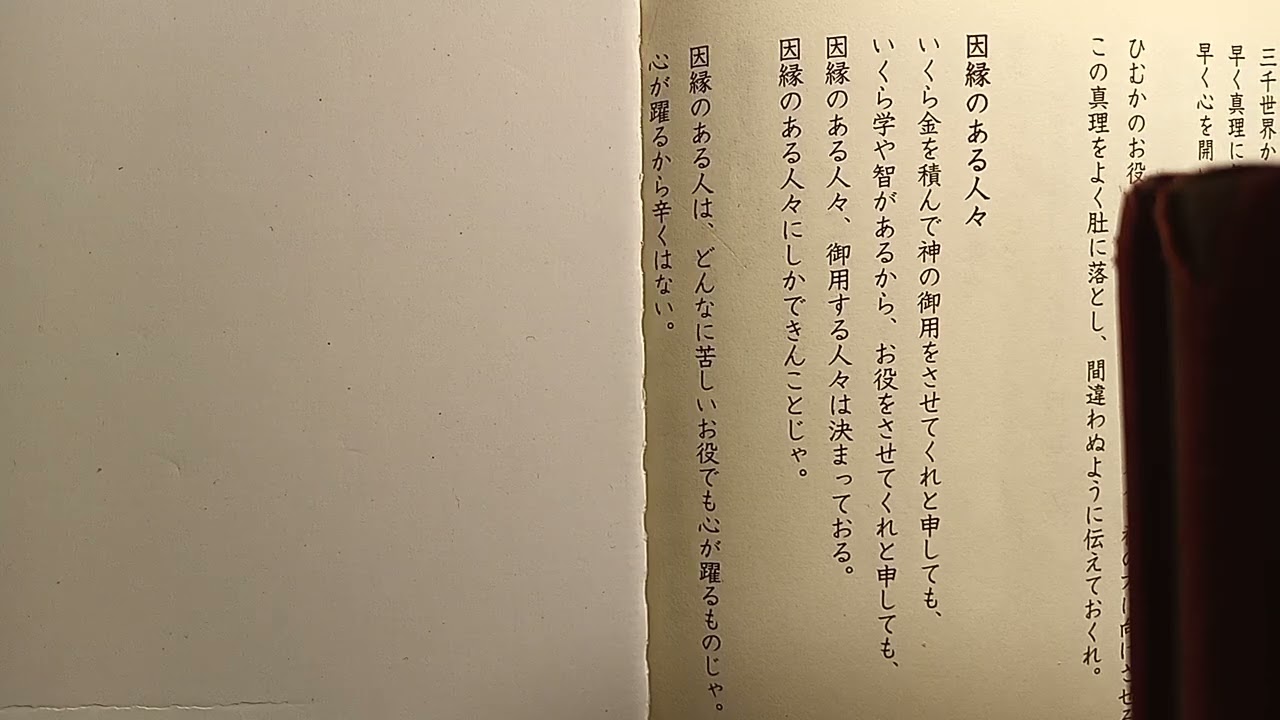 三千世界か
早く真理に
早く心を開
ひむかのお役
この真理をよく肚に落とし、間違わぬように伝えておくれ。
因縁のある人々
いくら金を積んで神の御用をさせてくれと申しても、
いくら学や智があるから、お役をさせてくれと申しても、
因縁のある人々、御用する人々は決まっておる。
因縁のある人々にしかできんことじゃ。
因縁のある人は、どんなに苦しいお役でも心が躍るものじゃ。
心が躍るから辛くはない。